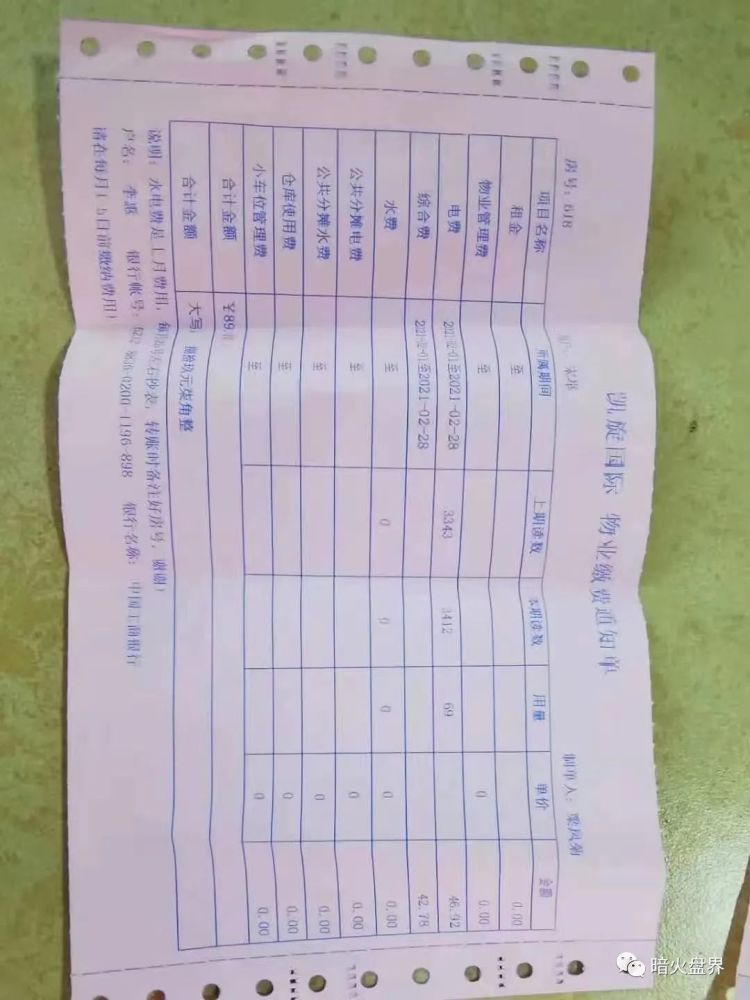 凯旋国际 物业缴费通知单
房号: 618 宋塔 制单人: 梁凤菊
项目名称 所属期间 上期读数 本期读数 用量 单价 金额
租金 至 0.00
物业管理费 至 0 0.00
电费 至2021-02-28 3343 3412 69 46.92
综合费 至2021-02-28 42.78
水费 至 0 0 0 0 0.00
公共分摊电费 至 0 0.00
公共分摊水费 至 0 0.00
仓库使用费 至 0 0.00
小车位管理费 至 0 0.00
合计金额 ¥89.
合计金额 大写: 玖元柒角整
说明: 水电费是上月费用, 每 左右抄表, 转账时备注好房号, 谢谢!
户名: 李惠 银行帐号: -0200-1196-898 银行名称: 中国工商银行
请在每月15日前缴纳费用!
暗火盘界